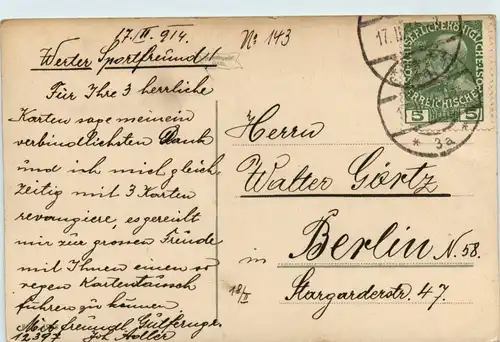 17./II. 914.
No 143
Werter Sportfreund!
Für Ihre 3 herrliche
Karten sage meinein
verbindlichsten Dank
und ich mich gleich
zeitig mit 3 Karten
revangiere, es gereiht
mir zur grossen Freude
mit Ihnen einen so
regen Kartentausch
führen zu können
Mit freundl.
12397 Joh. Adler
Herrn
Walter Görtz
in Berlin N. 58.
Stargarderstr. 47.
18/II
17. II
5 5
* 3a *